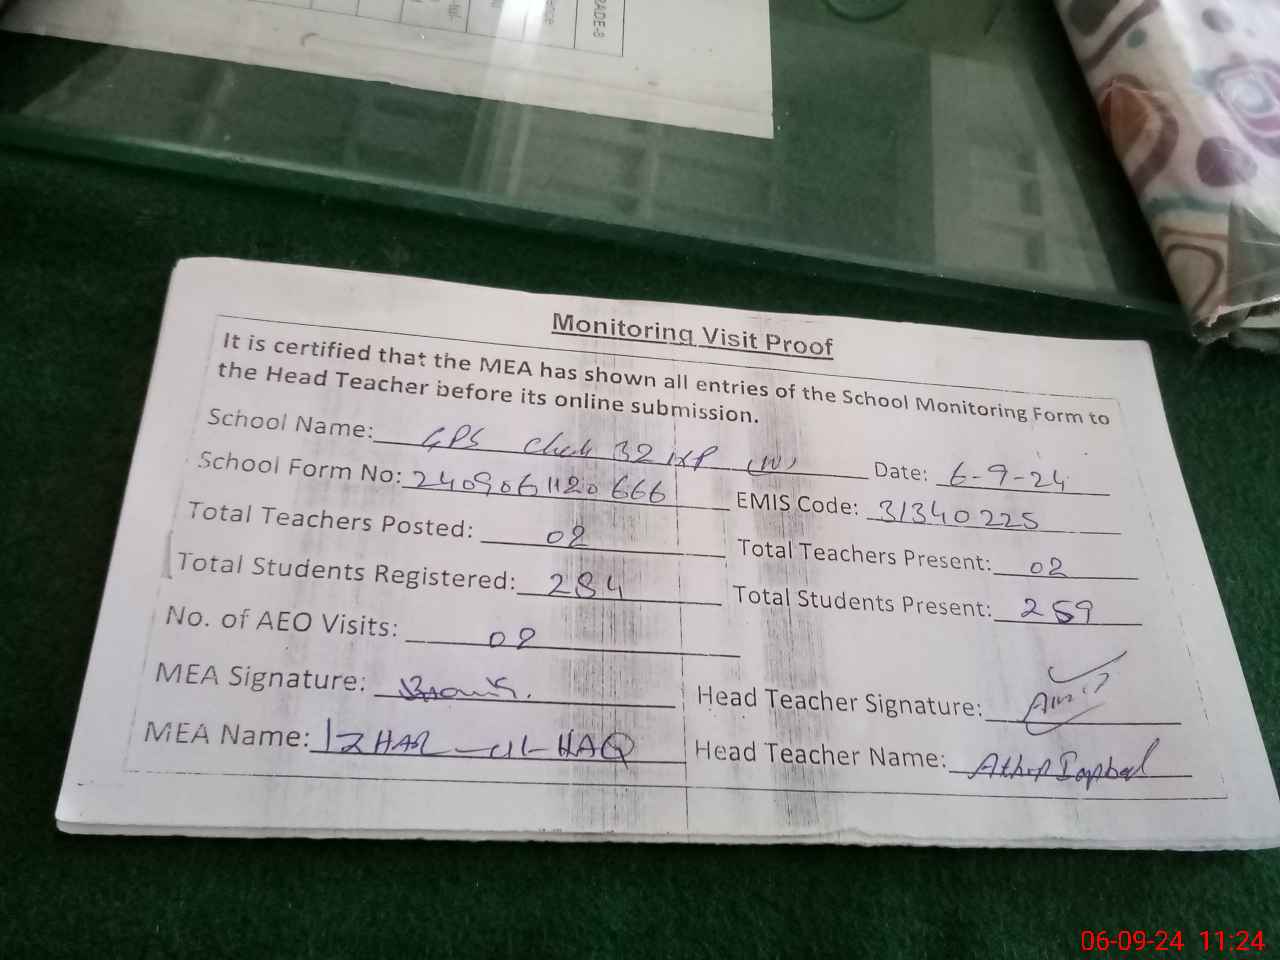 GRADE-8
Monitoring Visit Proof
It is certified that the MEA has shown all entries of the School Monitoring Form to
the Head Teacher before its online submission.
School Name: GPS Chak 32 Date: 6-9-24
School Form No: 2409061120666 EMIS Code: 31340225
Total Teachers Posted: 02 Total Teachers Present: 02
Total Students Registered: 284 Total Students Present: 259
No. of AEO Visits: 02
MEA Signature: Head Teacher Signature:
MEA Name: IZHAR-ul-HAQ Head Teacher Name:
06-09-24 11:24